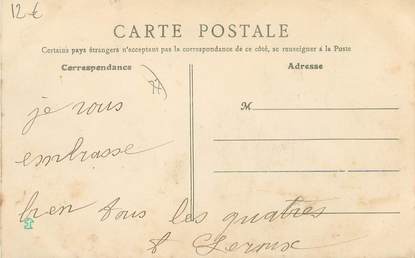 12 €
CARTE POSTALE
Certains pays étrangers n'acceptant pas la correspondance de ce côté, se renseigner à la Poste
Correspondance
Adresse
77
M
je vous
embrasse
bien tous les quatres
Leroux